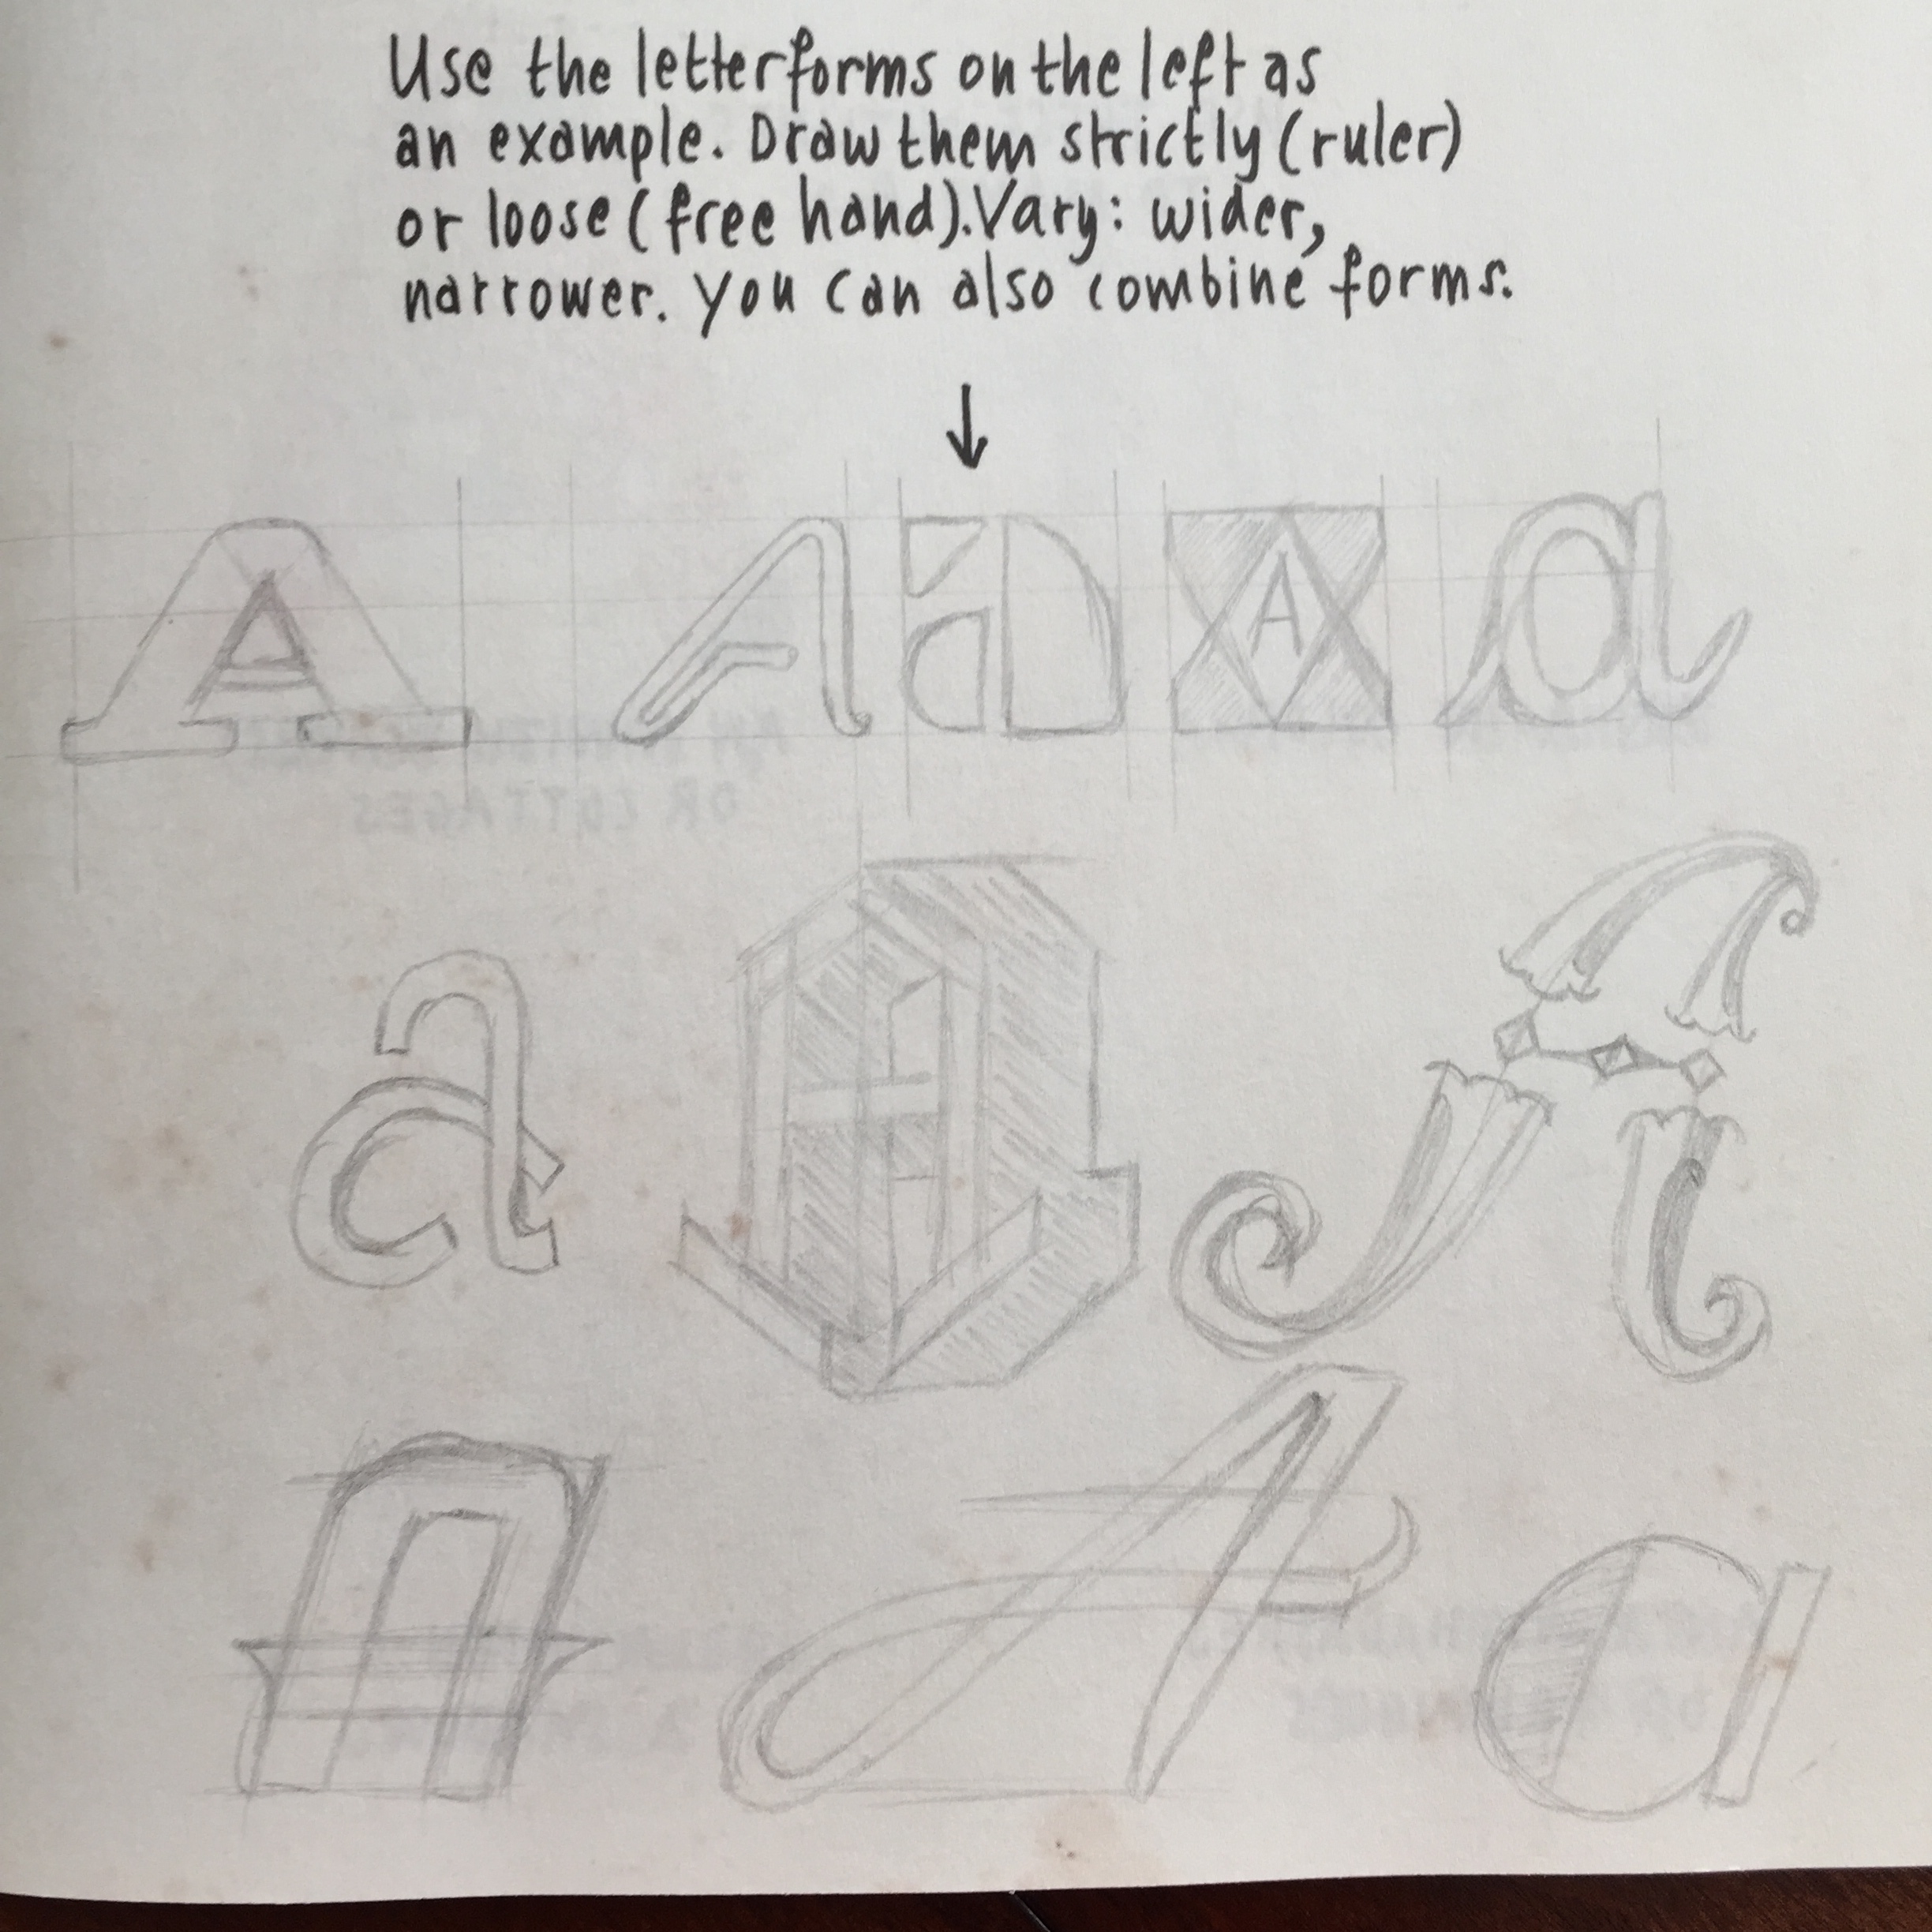 Use the letterforms on the left as
an example. Draw them strictly (ruler)
or loose (free hand). Vary: wider,
narrower. You can also combine forms.
A A a A a
a A A
A A a